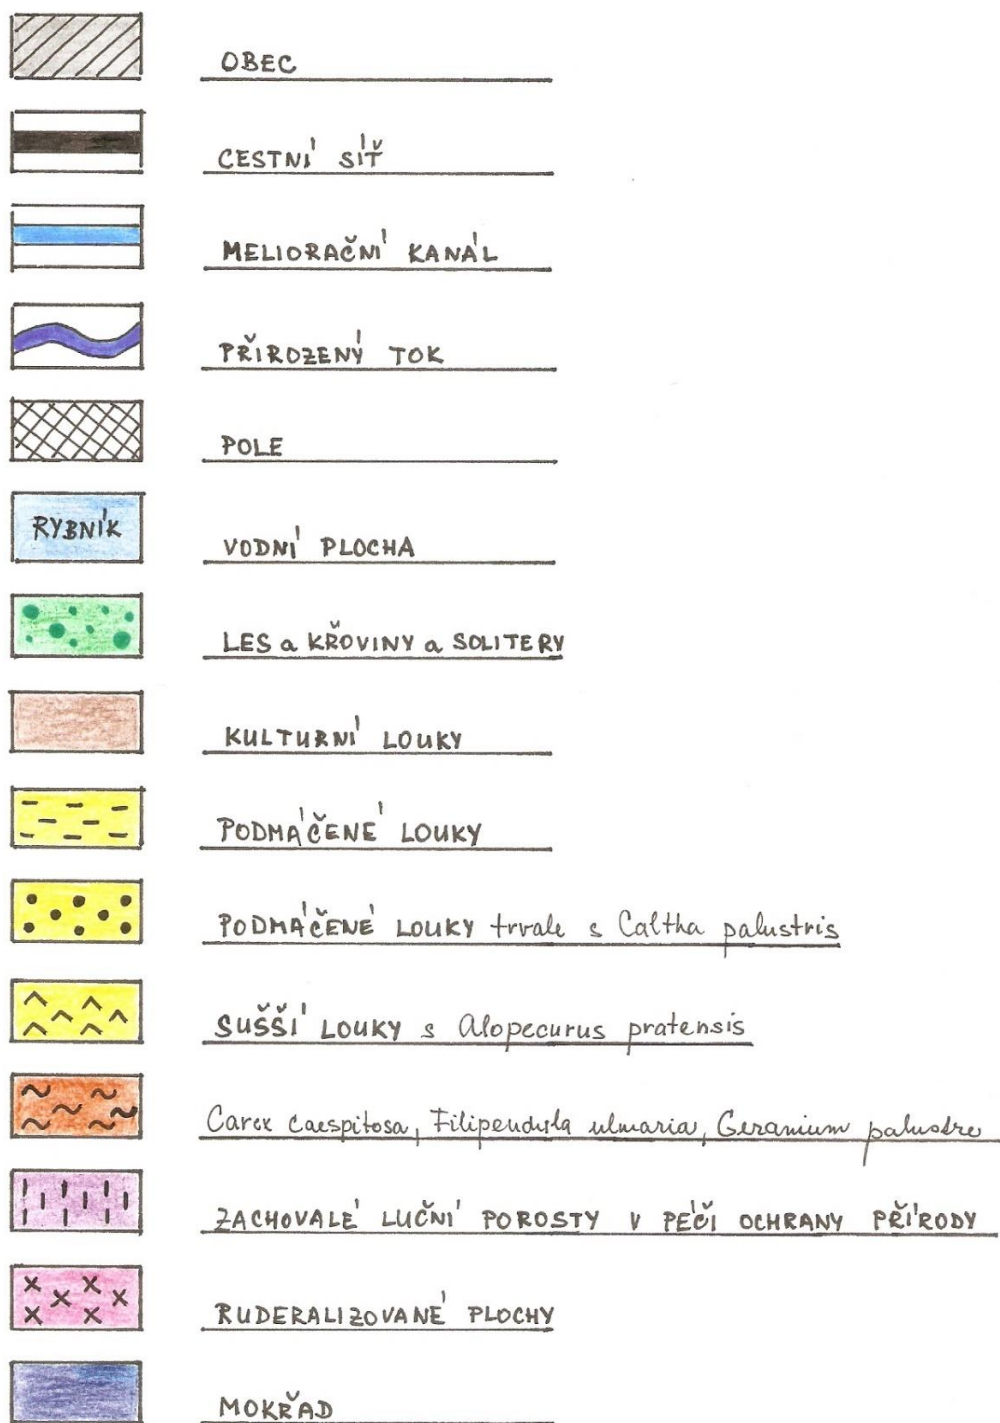 OBEC
CESTNÍ SÍŤ
MELIORAČNÍ KANÁL
PŘIROZENÝ TOK
POLE
RYBNÍK
VODNÍ PLOCHA
LES a KŘOVINY a SOLITERY
KULTURNÍ LOUKY
PODMÁČENÉ LOUKY
PODMÁČENÉ LOUKY trvale s Caltha palustris
SUŠŠÍ LOUKY s Alopecurus pratensis
Carex caespitosa, Filipendula ulmaria, Geranium palustre
ZACHOVALÉ LUČNÍ POROSTY V PÉČI OCHRANY PŘÍRODY
RUDERALIZOVANÉ PLOCHY
MOKŘAD